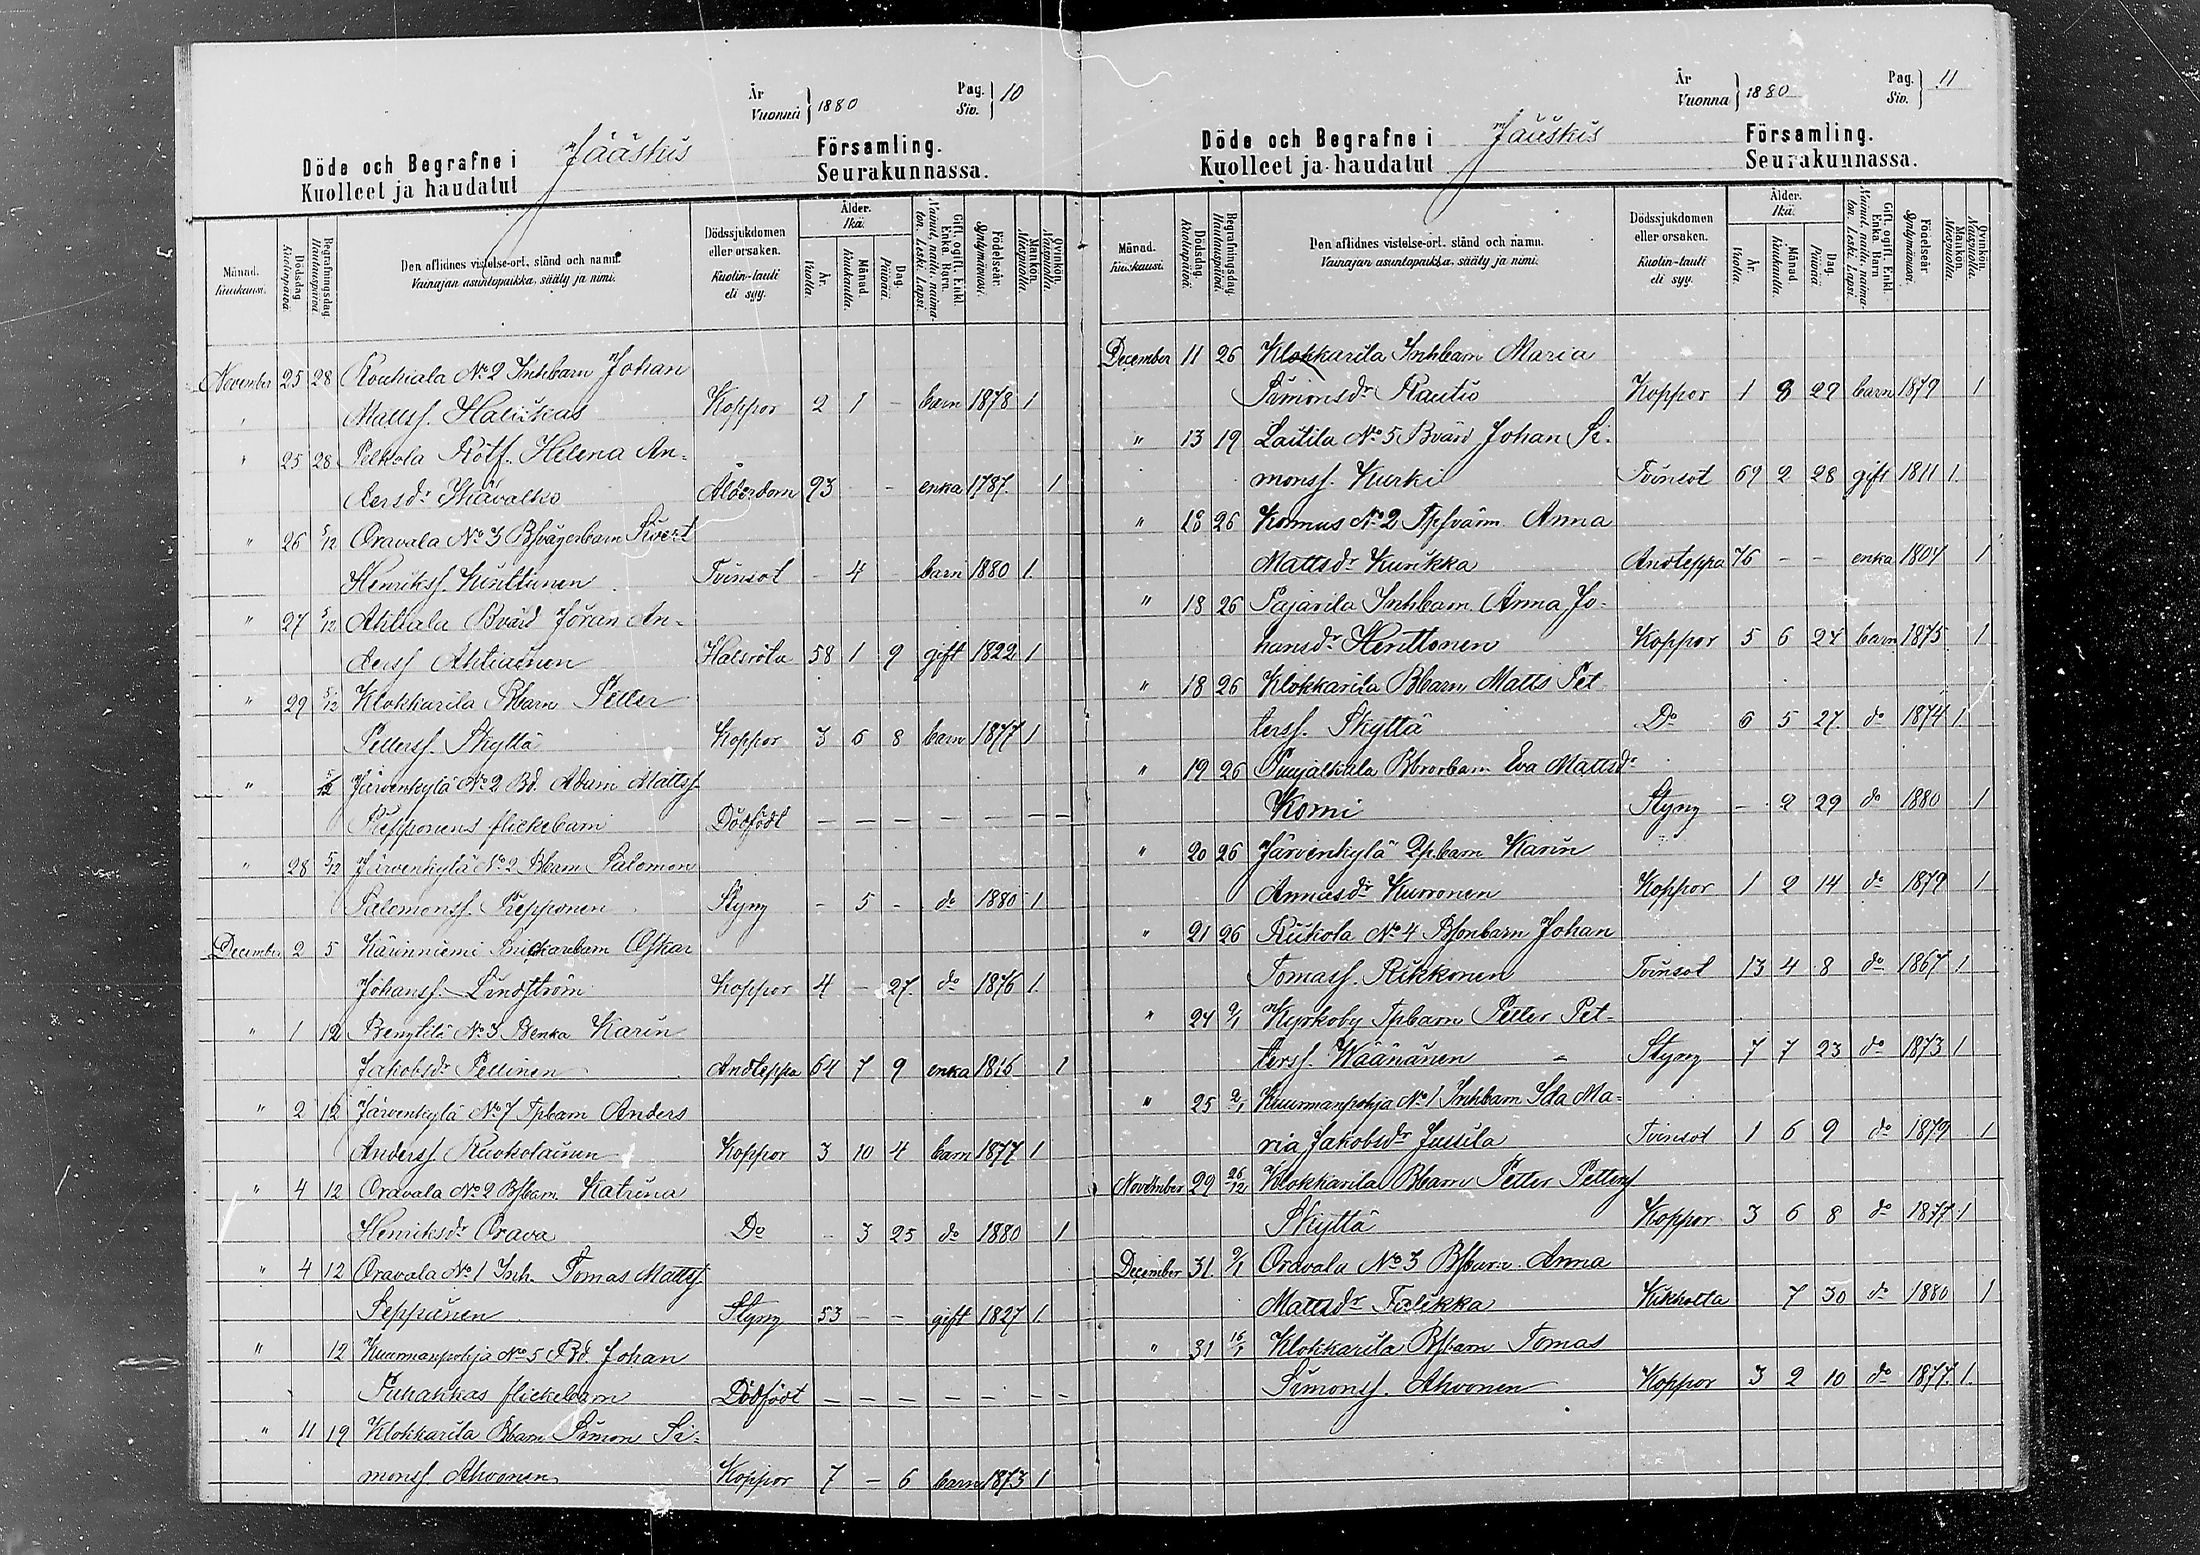 År
Vuonna } 1880
Pag.
Siv. } 10
Döde och Begrafne i Jääskis Församling.
Kuolleet ja haudatut Seurakunnassa.
Månad. Kuukausi.
Dödsdag. Kuolinpäivä.
Begrafningsdag. Hautauspäivä.
Den aflidnes vistelse-ort, stånd och namn.
Vainajan asuntopaikka, sääty ja nimi.
Dödssjukdomen eller orsaken.
Kuolin-tauti eli syy.
Ålder. Ikä.
År. Vuotta.
Månad. Kuukautta.
Dag. Päivää.
Gift, ogift, Enkl. Enka, Barn.
Nainut, naitu, naimaton, Leski, Lapsi.
Födelseår. Syntymävuosi.
Mankön. Miespuolia.
Qvinkön. Naispuolia.
November 25 28 Rouhiala No 2 Inhbarn Johan
" Mattsf. Halikkas Koppor 2 1 - barn 1878 1
" 25 28 Pelkola Rotf. Helena An-
dersdr Skävalko Ålderdom 93 - enka 1787 1
" 26 5/12 Oravala No 3 Bsvågerbarn Sivert
Henriksf. Kinttunen Tvinsot - 4 - barn 1880 1.
" 27 5/12 Ahtiala Bvärd Jöran An-
dersf Ahtiainen Halsröta 58 1 9 gift 1822 1
" 29 5/12 Klokkarila Bbarn Petter
Pettersf. Skyttä Koppor 3 6 8 barn 1877 1
" 5/12 Järvenkylä No 2 Bd. Adam Mattsf
Repponens flickebarn Dödfödt - - - - - - -
" 28 5/12 Järvenkylä No 2 Bbarn Salomon
Salomonsf. Repponen Styng - 5 - do 1880 1
December 2 5 Kärinniemi Brickarebarn Oskar
Johansf. Lindström Koppor 4 - 27. do 1876 1.
" 1 12 Bengtilä No 3 Benka Karin
Jakobsdr Pellinen Andteppa 64 7 9 enka 1816 1
" 2 12 Järvenkylä No 7 Tpbarn Anders
Andersf. Ruokolainen Koppor 3 10 4 barn 1877 1
" 4 12 Oravala No 2 Bsbarn Katrina
Henriksdr Orava Do - 3 25 do 1880 1
" 4 12 Oravala No 1 Inh. Tomas Mattsf.
Seppänen Styng 53 - - gift 1827 1.
" 12 Kuurmanpohja No 5 Bd. Johan
Puhakkas flickebarn Dödfödt - - - - - - -
" 11 19 Klokkarila Bbarn Simon Si-
monsf. Ahvonen Koppor 7 - 6 barn 1873 1
År
Vuonna } 1880
Pag.
Siv. } 11
Döde och Begrafne i Jääskis Församling.
Kuolleet ja haudatut Seurakunnassa.
Månad. Kuukausi.
Dödsdag. Kuolinpäivä.
Begrafningsdag. Hautauspäivä.
Den aflidnes vistelse-ort, stånd och namn.
Vainajan asuntopaikka, sääty ja nimi.
Dödssjukdomen eller orsaken.
Kuolin-tauti eli syy.
Ålder. Ikä.
År. Vuotta.
Månad. Kuukautta.
Dag. Päivää.
Gift, ogift, Enkl. Enka, Barn.
Nainut, naitu, naimaton, Leski, Lapsi.
Födelseår. Syntymävuosi.
Mankön. Miespuolia.
Qvinkön. Naispuolia.
December 11 26 Klokkarila Inhbarn Maria
Simonsdr Rautio Koppor 1 8 29 barn 1879 1
" 13 19 Laitila No 5 Bvärd Johan Si-
monsf. Kurki Tvinsot 69 2 28 gift 1811 1.
" 18 26 Komus No 2 Anna
Mattsdr Kurikka Andteppa 76 - - enka 1804 1
" 18 26 Pajarila Inhbarn Anna Jo-
hansdr Henttonen Koppor 5 6 24 barn 1875. 1
" 18 26 Klokkarila Bbarn Matts Pet-
tersf. Skyttä Do 6 5 27 do 1874 1.
" 19 26 Bbrorbarn Eva Mattsdr
Komi Styng - 2 29 do 1880 1
" 20 26 Järvenkylä Karin
Annasdr Kurronen Koppor 1 2 14 do 1879 1
" 21 26 Rükola No 4 Bsonbarn Johan
Tomasf. Rikkonen Tvinsot 13 4 8 do 1867 1
" 24 9/1 Kyrkoby Tpbarn Petter Pet-
tersf. Wäänänen Styng 7 7 23 do 1873 1
" 25 9/1 Kuurmanpohja No 1 Inhbarn Ida Ma-
ria Jakobsdr Jussila Tvinsot 1 6 9 do 1879 1
November 29 26/12 Klokkarila Bbarn Petter Pettersf
Skyttä Koppor 3 6 8 do 1877 1
December 31. 9/1 Oravala No 3 Bsbarn Anna
Mattsdr Talikka Kikhosta 7 30 do 1880 1
" 31 16/1 Klokkarila Bsbarn Tomas
Simonsf. Ahvonen Koppor 3 2 10 do 1877. 1.